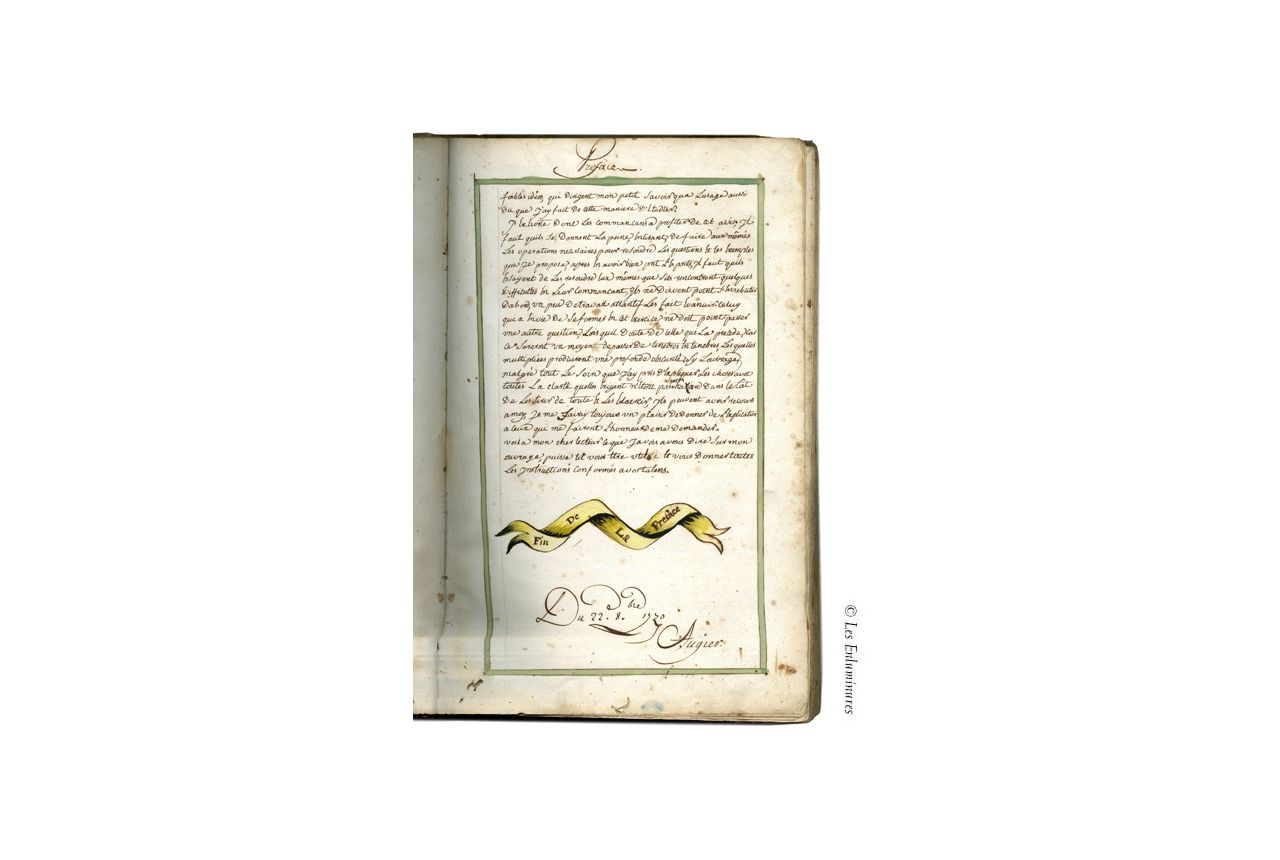 Preface
foibles idées qui dirigent mon petit savoir que lusage aussi
du que J'ay fait de cette maniere d'Etudier.
dont Les commancans a profiter de cet avis, Il
faut quils se donnent La peine, En Lisant, de faire aux mêmes
Les operations necessaires pour resoudre Les questions & les Exemples
que Je propose, apres En avoir bien prit L'Esprit, Il faut quils
Essayent de Les resoudre Eux mêmes que sils rencontrent quelques
difficultés En Leur commancant, Ils ne doivent point
Dabord, un peu de travail attantif Les fait Evanuir. Celuy
qui a Envie de se former En cet Exercice ne doit point passer
une autre question, Lors quil doute de celle qui La precede, Car
ce seroit un moyent de passer de tenebres En tenebres Les quelles
multipliées produiront une profonde obscurité. Sy Louvrage,
malgré tout Le soin que J'ay pris d'Expliquer Les choses avec
toutes La clarté quelles Exigent n'Etoit pas dans le Cas
De Les tirer de toute & Les Eclarcir, Ils peuvent avoir recours
a moy Je me fairay toujours un plaisir de donner de L'aplication
a ceux qui me fairont L'honneur de me demander.
voila mon cher Lecteur ce que J'avois a vous Dire sur mon
ouvrage, puisse til vous Etre utile & vous donner toutes
Les Instructions conformes a vos talens.
Fin De La Preface
Du 22. 8.bre 1770
Augier.
© Les Enluminures